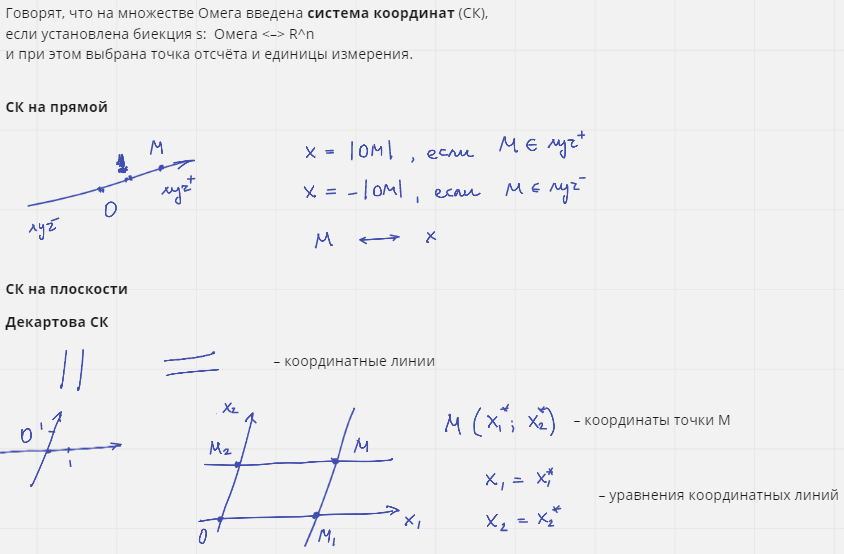 Говорят, что на множестве Омега введена система координат (СК),
если установлена биекция s: Омега <–> R^n
и при этом выбрана точка отсчёта и единицы измерения.
СК на прямой
M
O
луч⁺
луч⁻
x = |OM| , если M ∈ луч⁺
x = -|OM| , если M ∈ луч⁻
M ↔ x
СК на плоскости
Декартова СК
– координатные линии
O 1
1
x₂
M₂
M
O
M₁
x₁
M (x₁*; x₂*) – координаты точки M
x₁ = x₁*
– уравнения координатных линий
x₂ = x₂*